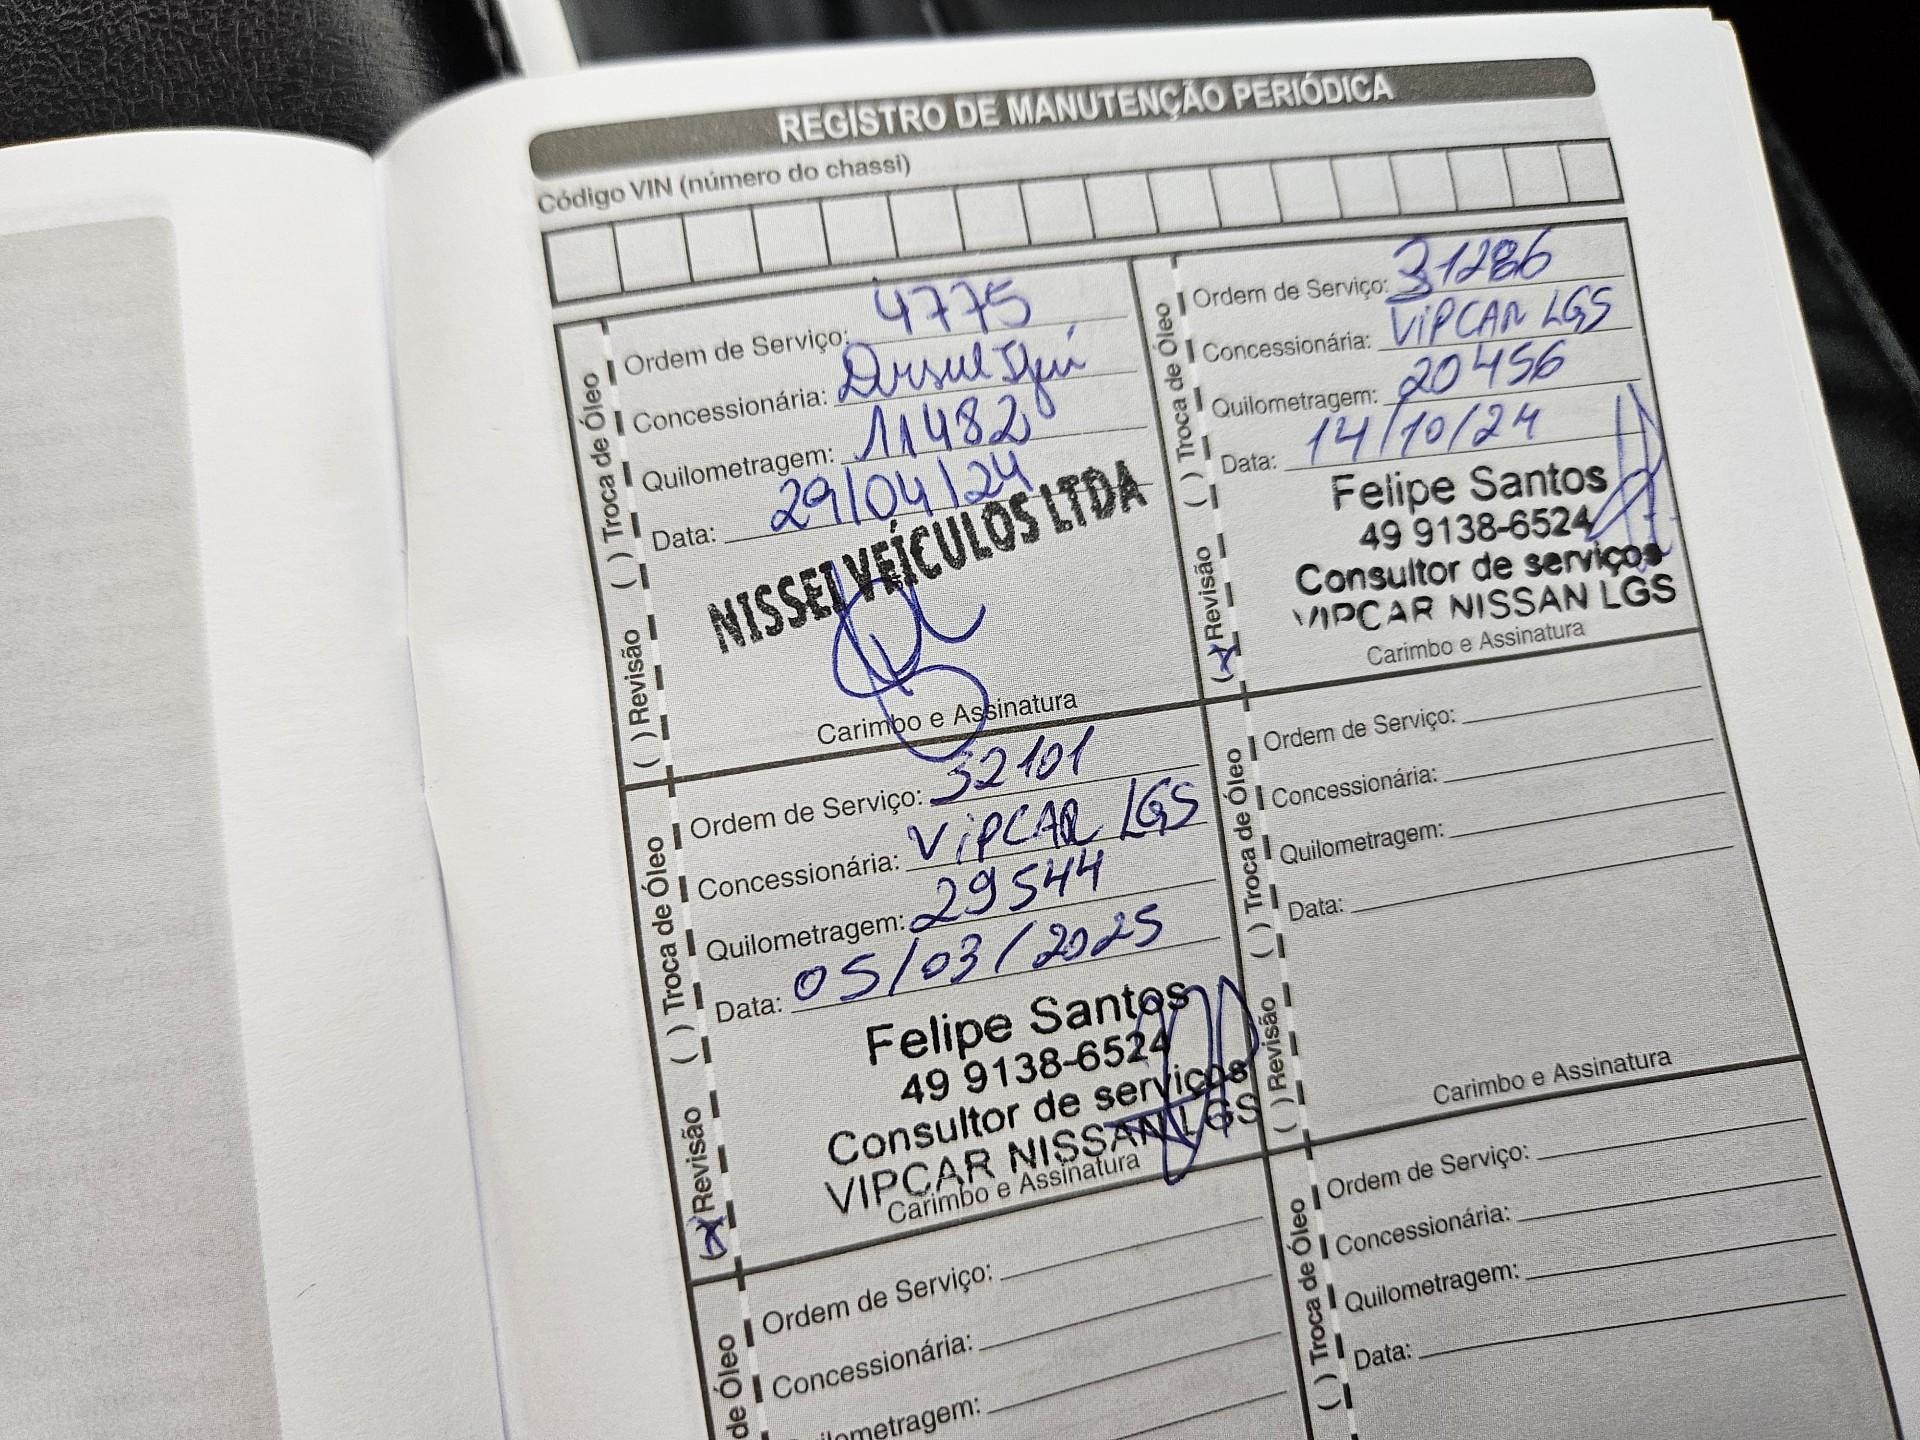 REGISTRO DE MANUTENÇÃO PERIÓDICA
Código VIN (número do chassi)
( ) Revisão ( ) Troca de Óleo
Ordem de Serviço: 4775
Concessionária: Drsul Ijuí
Quilometragem: 11482
Data: 29/04/24
NISSEI VEÍCULOS LTDA
Carimbo e Assinatura
(x) Revisão ( ) Troca de Óleo
Ordem de Serviço: 31286
Concessionária: VIPCAR LGS
Quilometragem: 20456
Data: 14/10/24
Felipe Santos
49 9138-6524
Consultor de serviços
VIPCAR NISSAN LGS
Carimbo e Assinatura
(x) Revisão ( ) Troca de Óleo
Ordem de Serviço: 32101
Concessionária: VIPCAR LGS
Quilometragem: 29544
Data: 05/03/2025
Felipe Santos
49 9138-6524
Consultor de serviços
VIPCAR NISSAN LGS
Carimbo e Assinatura
( ) Revisão ( ) Troca de Óleo
Ordem de Serviço:
Concessionária:
Quilometragem:
Data:
Carimbo e Assinatura
de Óleo
Ordem de Serviço:
Concessionária:
ilometragem:
( ) Troca de Óleo
Ordem de Serviço:
Concessionária:
Quilometragem:
Data: